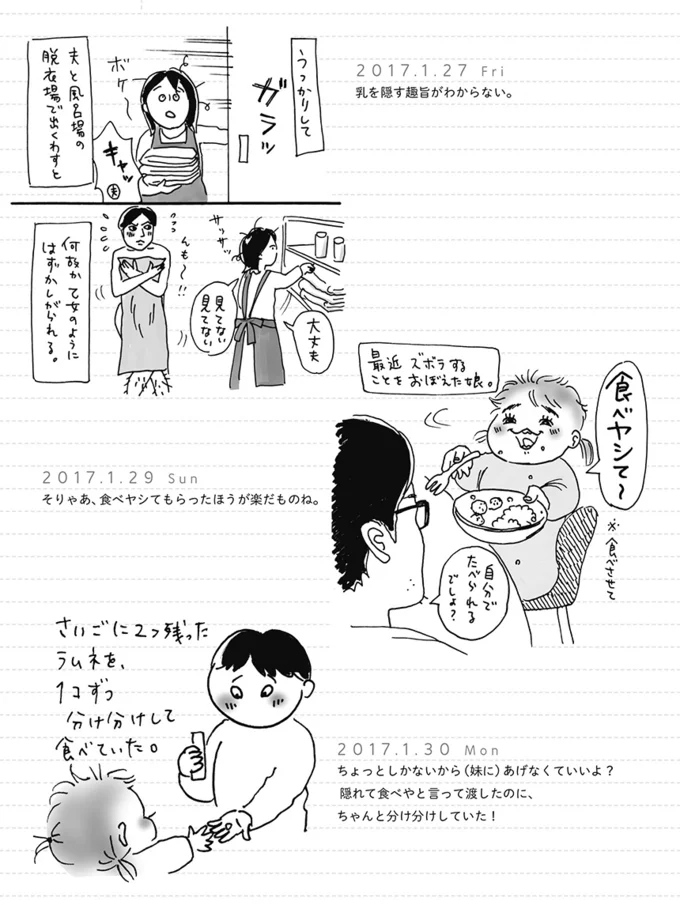 うっかりして
ガラッ
ボケ〜
キャッ
夫
夫と風呂場の
脱衣場で出くわすと
2017.1.27 Fri
乳を隠す趣旨がわからない。
サササッ
大丈夫
見てない
見てない
んも〜!!
何故か乙女のように
はずかしがられる。
最近 ズボラする
ことをおぼえた娘。
食べヤシて〜
※食べさせて
自分で
たべられる
でしょ?
2017.1.29 Sun
そりゃあ、食べヤシてもらったほうが楽だものね。
さいごに2つ残った
ラムネを、
1コずつ
分け分けして
食べていた。
2017.1.30 Mon
ちょっとしかないから（妹に）あげなくていいよ？
隠れて食べやと言って渡したのに、
ちゃんと分け分けしていた！